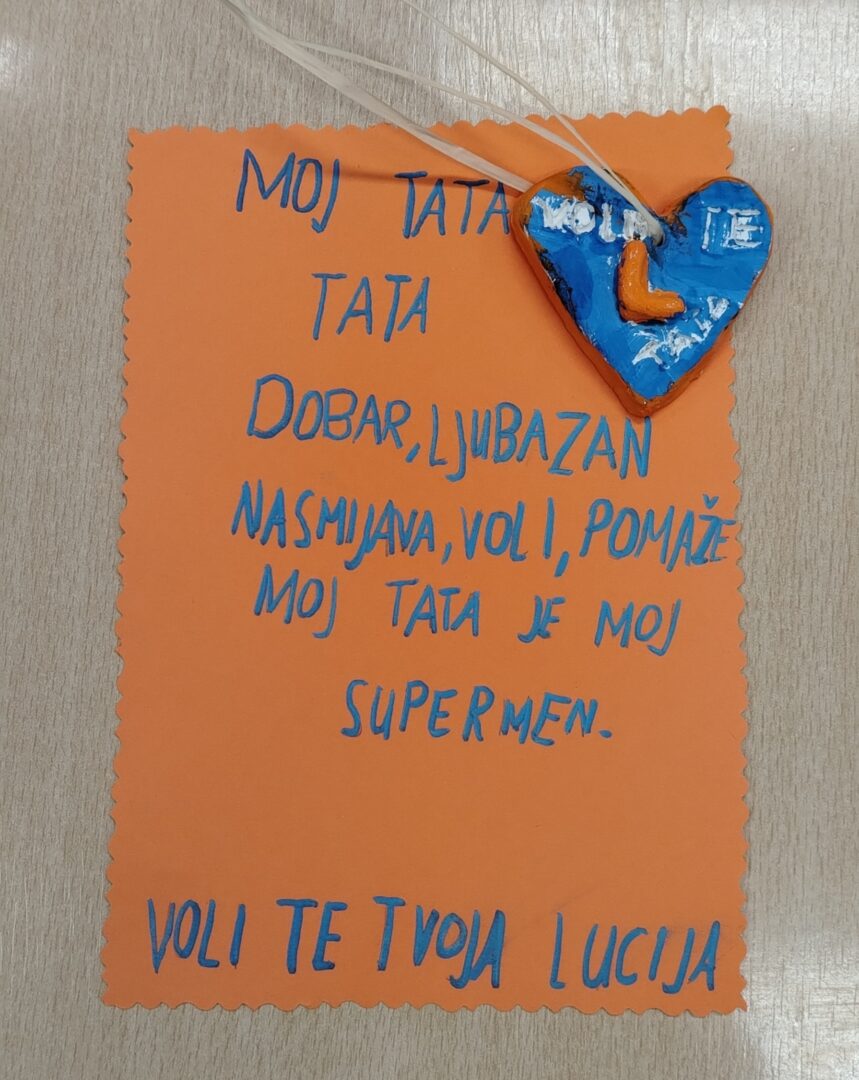 MOJ TATA
TATA
DOBAR, LJUBAZAN
NASMIJAVA, VOLI, POMAŽE
MOJ TATA JE MOJ
SUPERMEN.
VOLI TE TVOJA LUCIJA
TE
L